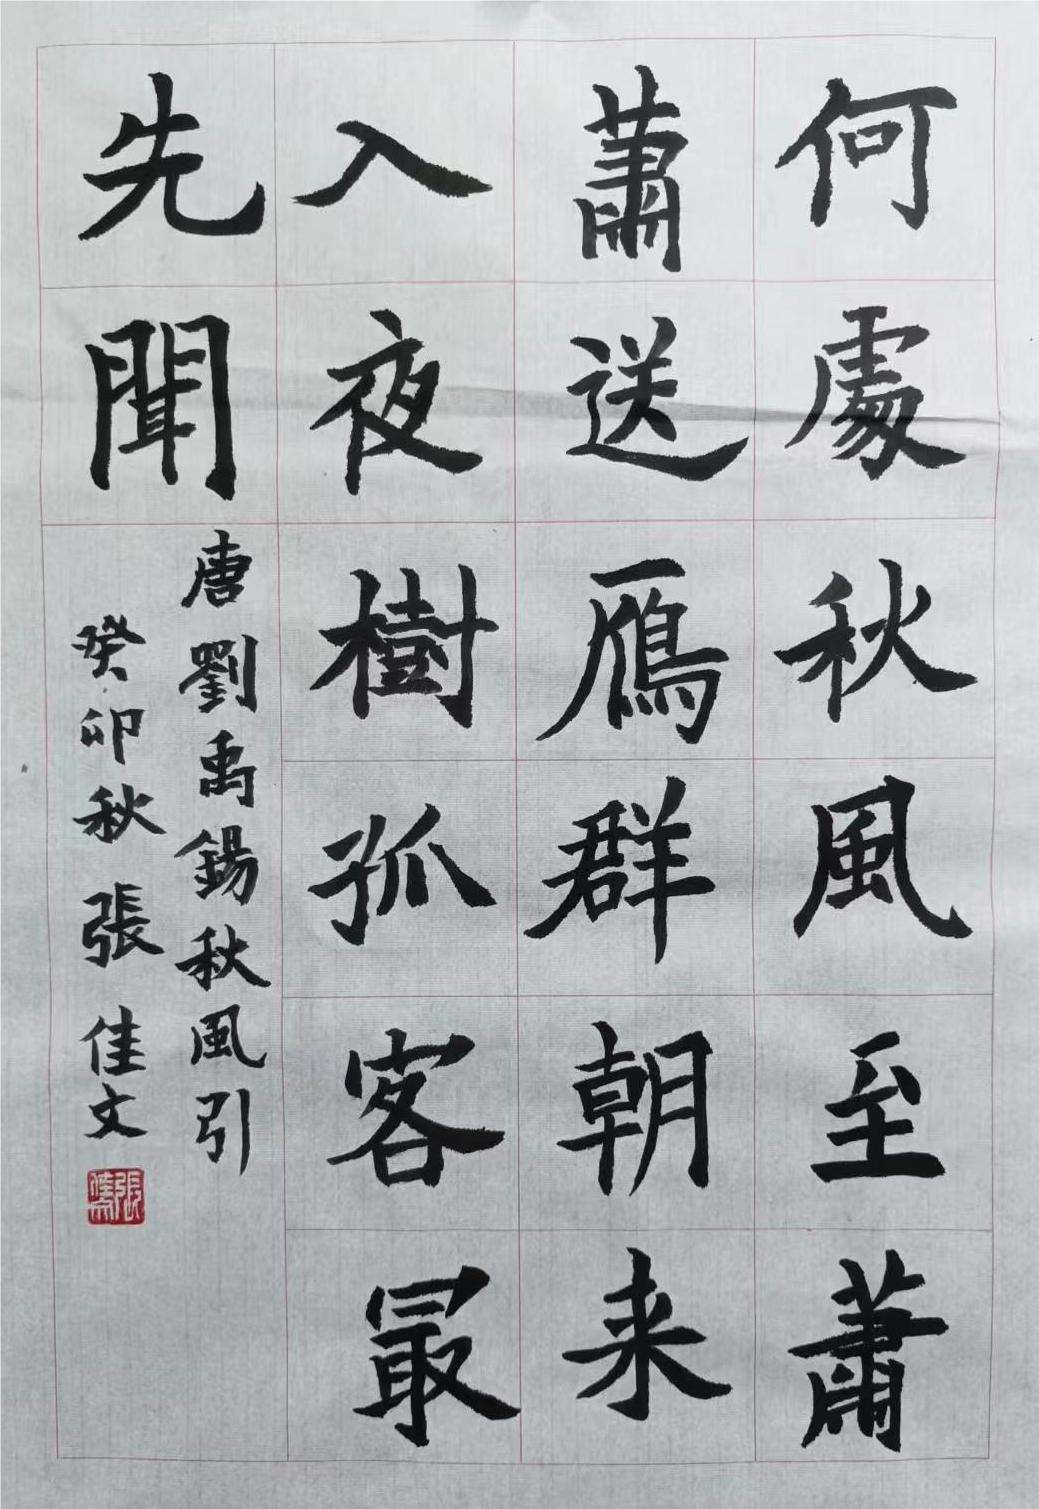 何處秋風至蕭
蕭送鴈群朝来
入夜樹孤客最
先聞
唐劉禹錫秋風引
癸卯秋張佳文